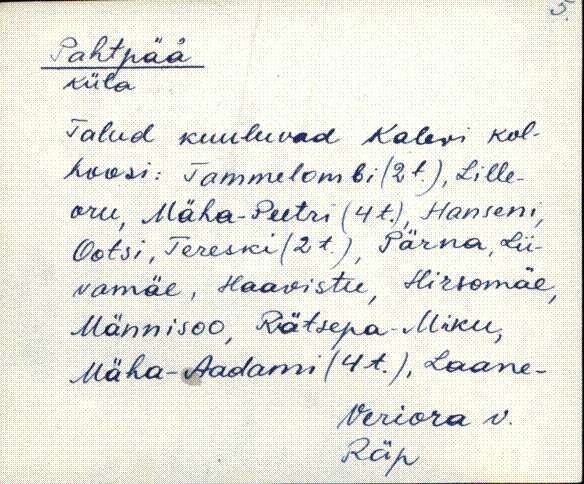 5.
Pahtpää
küla
Talud kuuluvad Kalevi kol-
hoosi: Tammelombi (2 t.), Lille-
oru, Mäha-Peetri (4 t.), Hanseni,
Ootsi, Tereski (2 t.), Pärna, Lii-
vamäe, Haavistu, Hirsomäe,
Männisoo, Rätsepa-Miku,
Mäha-Aadami (4 t.), Laane-
Veriora v.
Räp